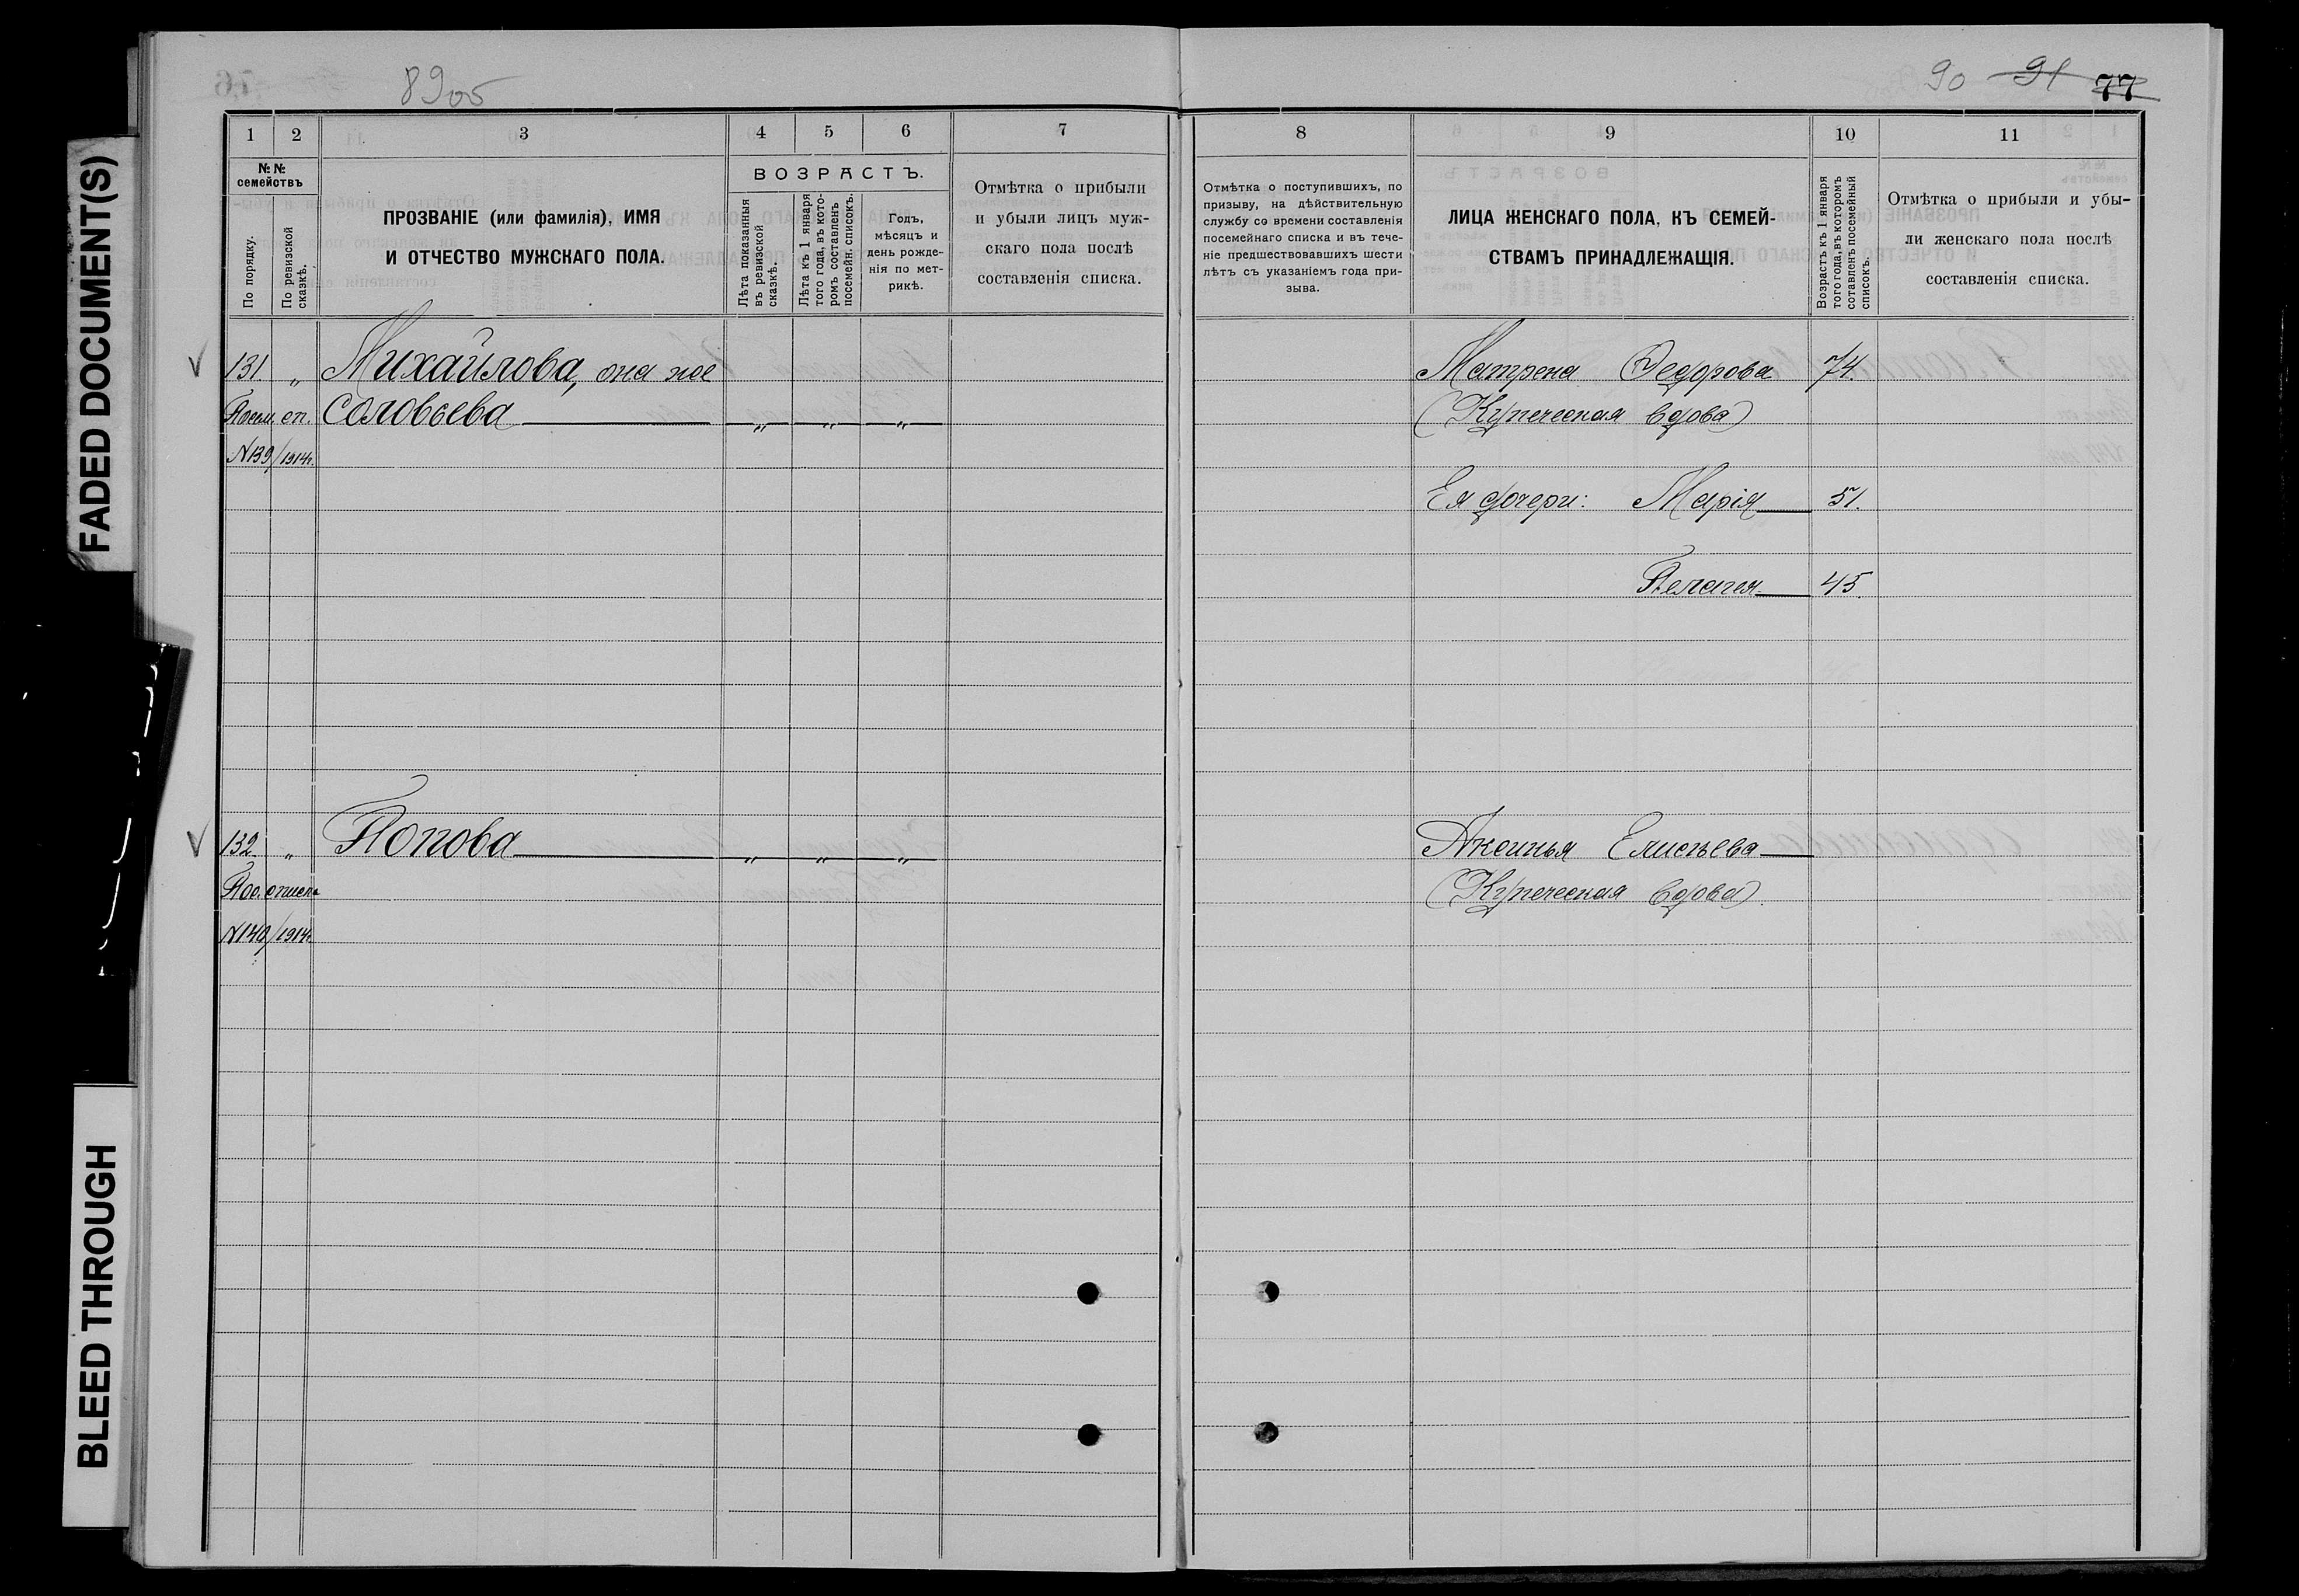 FADED DOCUMENT(S)
BLEED THROUGH
89об
90 91 77
1 2 3 4 5 6 7
№№ семействъ
По порядку.
По ревизской сказкѣ.
ПРОЗВАНІЕ (или фамилія), ИМЯ
И ОТЧЕСТВО МУЖСКАГО ПОЛА.
ВОЗРАСТЪ.
Лѣта показанныя въ ревизской сказкѣ.
Лѣта къ 1 января того года, въ кото-ромъ составленъ посемейн. списокъ.
Годъ,
мѣсяцъ и
день рожде-
нія по мет-
рикѣ.
Отмѣтка о прибыли
и убыли лицъ муж-
скаго пола послѣ
составленія списка.
8 9 10 11
Отмѣтка о поступившихъ, по
призыву, на дѣйствительную
службу со времени составленія
посемейнаго списка и въ тече-
ніе предшествовавшихъ шести
лѣтъ съ указаніемъ года при-
зыва.
ЛИЦА ЖЕНСКАГО ПОЛА, КЪ СЕМЕЙ-
СТВАМЪ ПРИНАДЛЕЖАЩІЯ.
Возрастъ къ 1 января
того года, въ которомъ
сотавленъ посемейный
списокъ.
Отмѣтка о прибыли и убы-
ли женскаго пола послѣ
составленія списка.
131 „ Михайлова, она же Матрена Федорова 74.
Посем. сп. Соловьева „ „ „ (Купеческая вдова)
N139/1914г.
Ея дочери: Марія 51.
Пелагея 45.
132 „ Попова „ „ „ Аксинья Елисѣева
Пос. списка (Купеческая вдова).
N140/1914г.